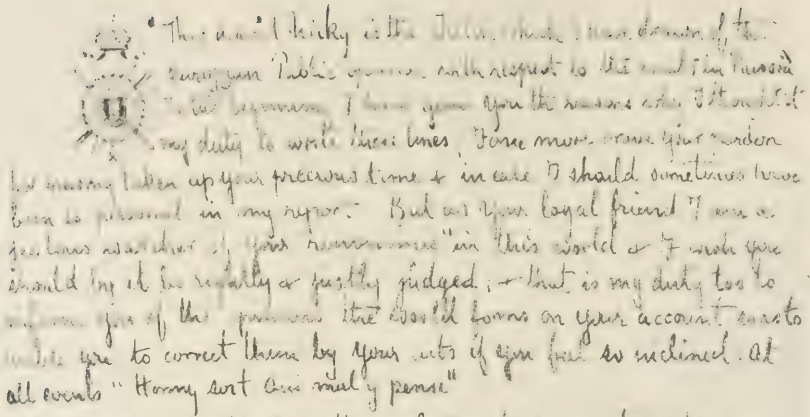 "This dear Nicky is the which I have drawn of the
European Public opinion with respect to the in Russia
beginning I have given you the reasons why I thought it
my duty to write these lines, I once more crave your pardon
for having taken up your precious time & in case I should sometimes have
been to personal in my report. But as your loyal friend I am a
jealous watcher of your "renommee" in this world & I wish you
should by it be rightly & justly judged, & that is my duty too to
inform you of the the World forms on your account so as to
enable you to correct them by your acts if you feel so inclined. At
all events "Honny soit qui mal y pense"